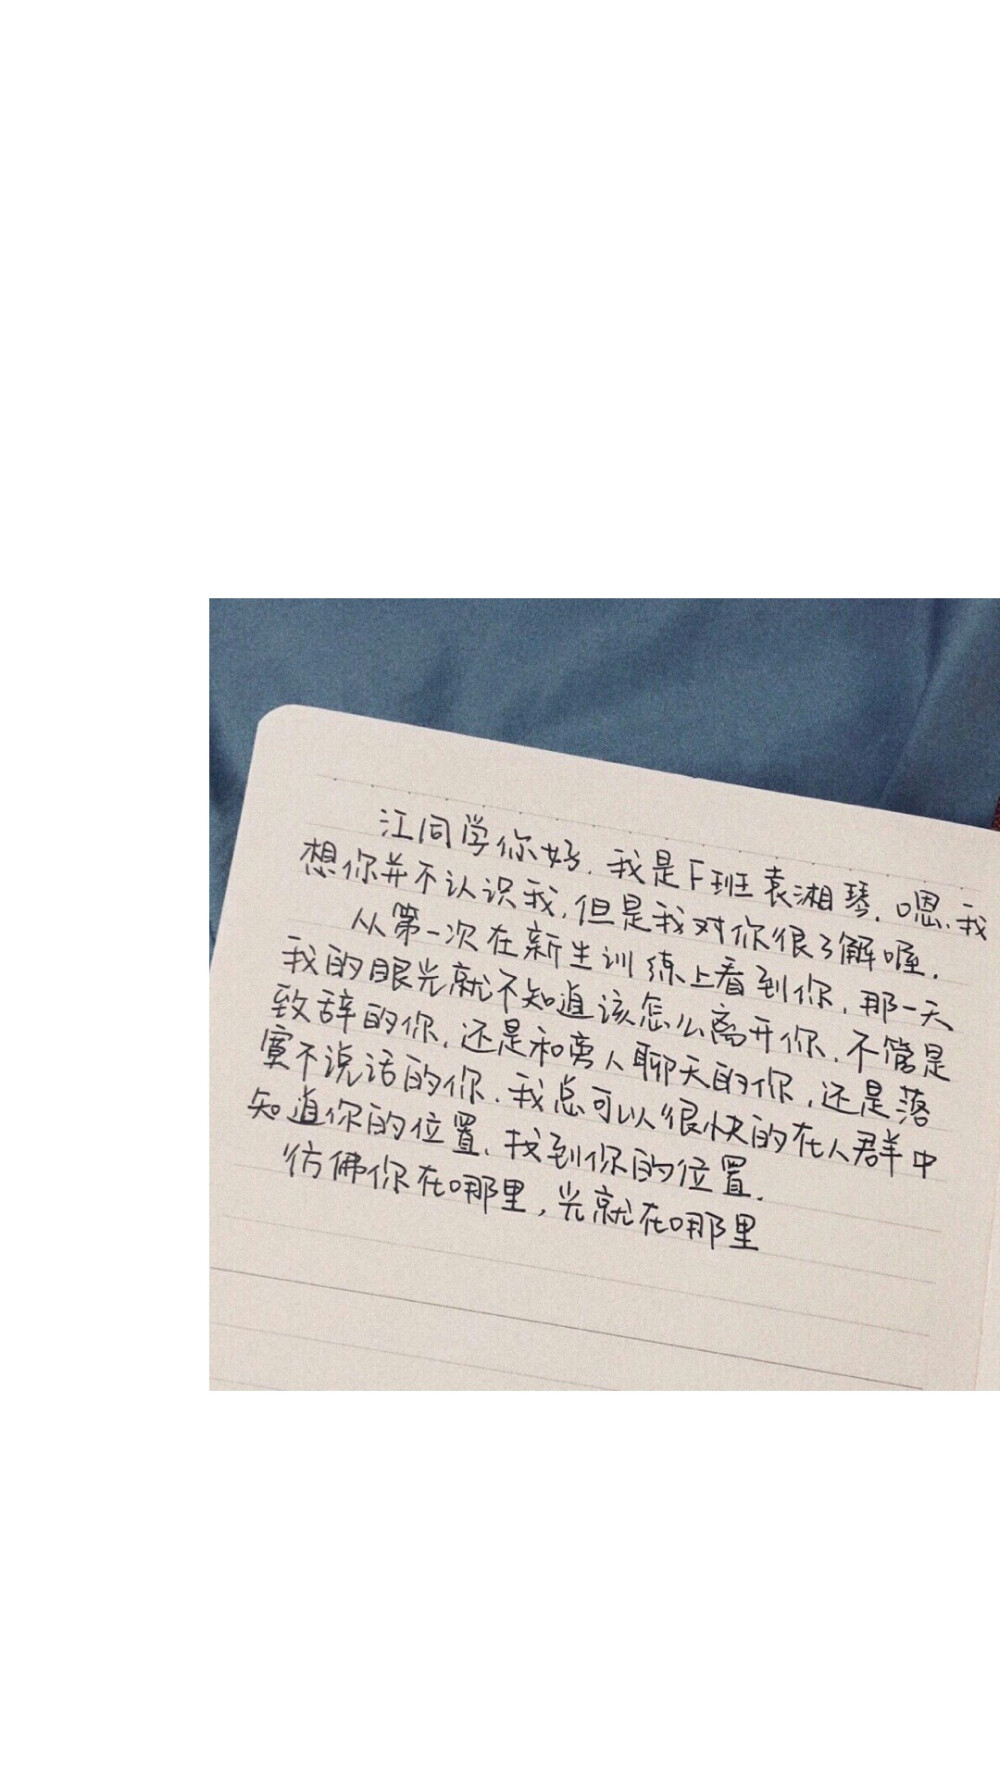 江同学你好.我是F班袁湘琴.嗯.我
想你并不认识我,但是我对你很了解喔.
从第一次在新生训练上看到你,那一天
我的眼光就不知道该怎么离开你.不管是
致辞的你.还是和旁人聊天的你,还是落
寞不说话的你.我总可以很快的在人群中
知道你的位置.找到你的位置.
彷佛你在哪里,光就在哪里